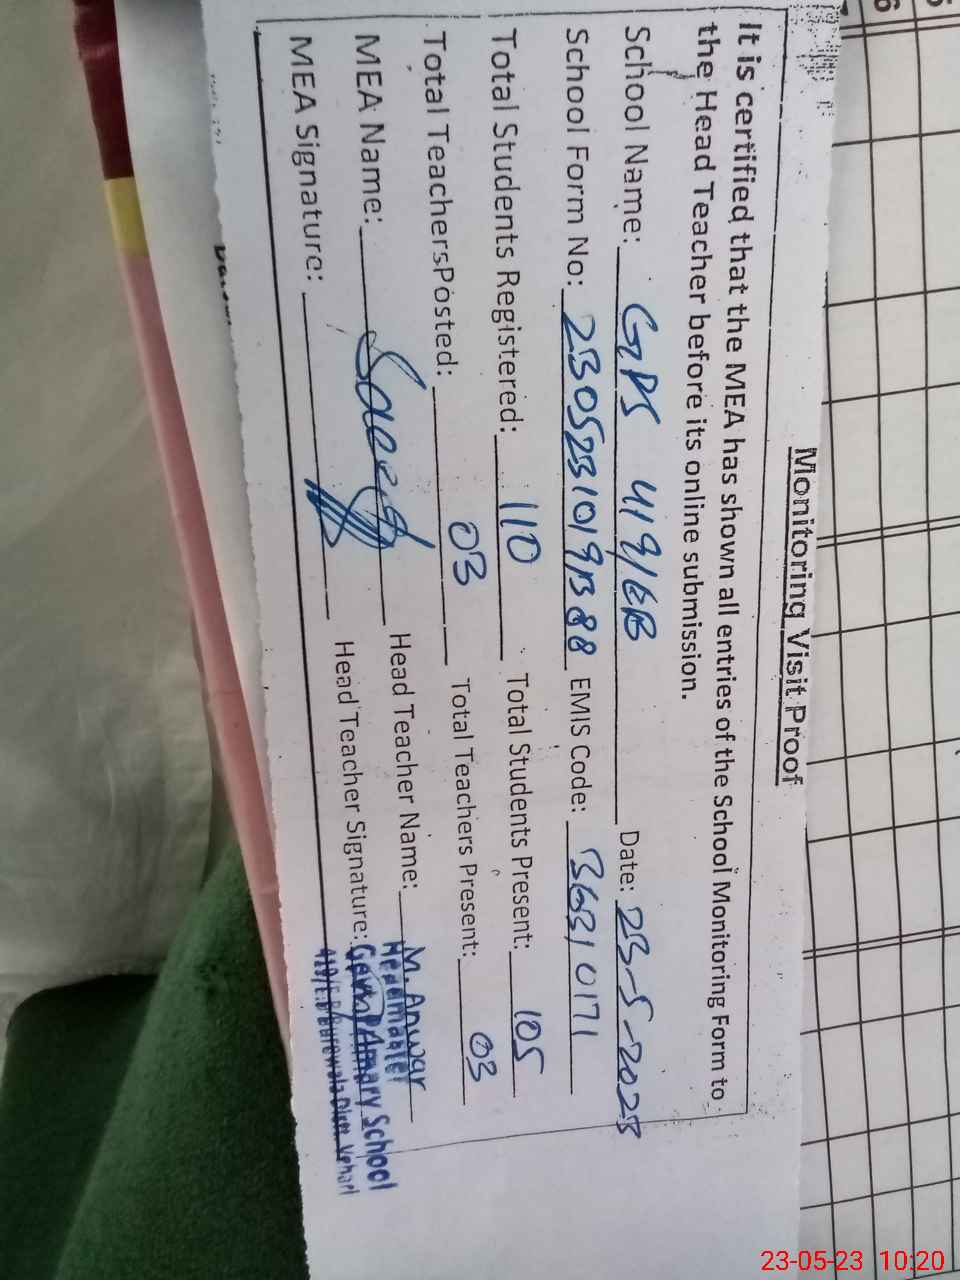 Monitoring Visit Proof
It is certified that the MEA has shown all entries of the School Monitoring Form to
the Head Teacher before its online submission.
School Name: GPS 419/EB Date: 23-5-2023
School Form No: 2305231019388 EMIS Code: 36310171
Total Students Registered: 110 Total Students Present: 105
Total TeachersPosted: 03 Total Teachers Present: 03
MEA Name: Saeed Head Teacher Name: M. Anwar
MEA Signature: Head Teacher Signature:
Headmaster
Govt. P/Amary School
419/E.B Burewala Distt Vehari
6
23-05-23 10:20